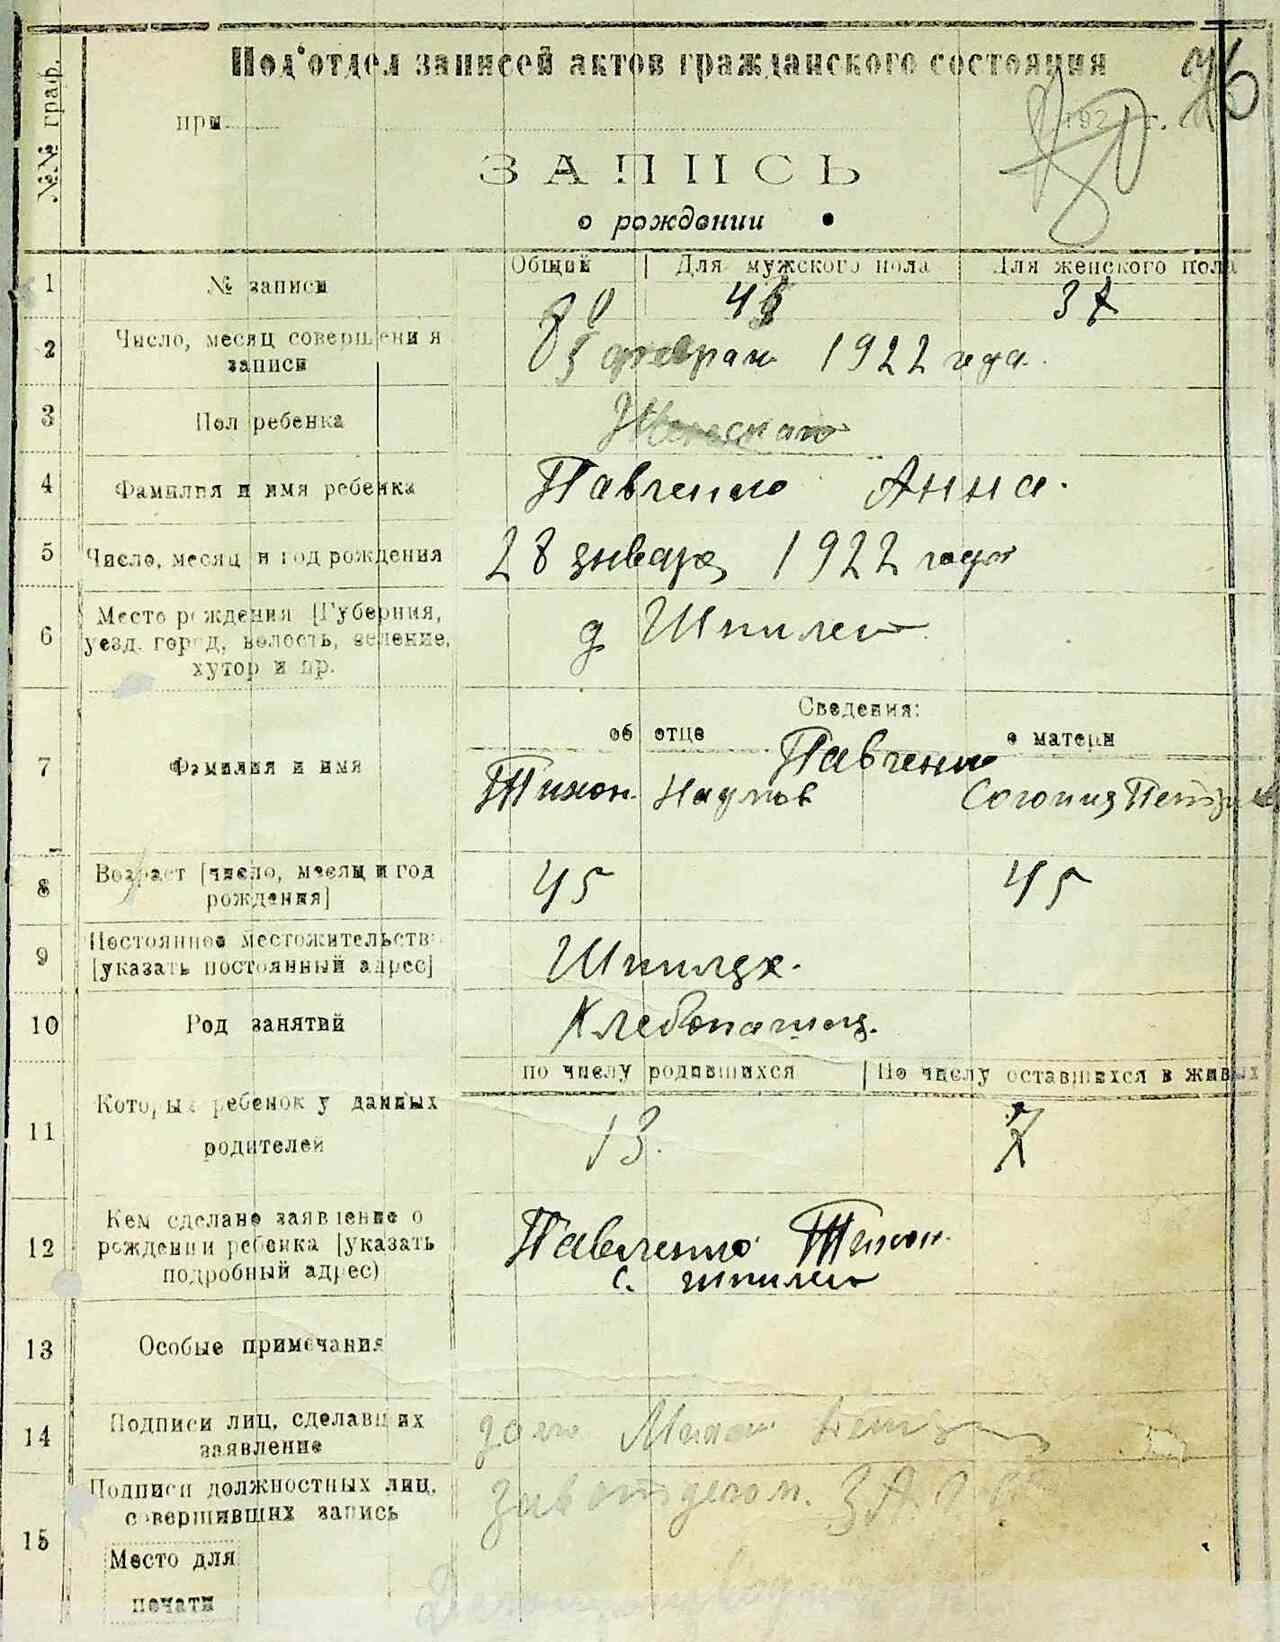 Под'отдел записей актов гражданского состояния
76
№№ граф.
при
192 г.
80
ЗАПИСЬ
о рождении
Общий Для мужского пола Для женского пола
1 № записи 80 37
2 Число, месяц совершения записи 1922 года.
3 Пол ребенка Женская
4 Фамилия и имя ребенка Павленко Анна.
5 Число, месяц и год рождения 28 января 1922 года
6 Место рождения [Губерния, уезд. город, волость, селение, хутор и пр. д Шпилеи
Сведения:
об отце о матери
Павленко
7 Фамилия и имя Тихон Наумов
8 Возраст [число, месяц и год рождения] 45 45
9 Постоянное местожительств [указать постоянный адрес] Шпилях.
10 Род занятий Хлебопашец.
по числу родившихся По числу оставшихся в живых
11 Который ребенок у данных родителей 13. 7
12 Кем сделано заявление о рождении ребенка [указать подробный адрес) Павленко Тихон.
с. шпилеи
13 Особые примечания
14 Подписи лиц, сделавших заявление
15 Подписи должностных лиц, совершивших запись
Место для печати